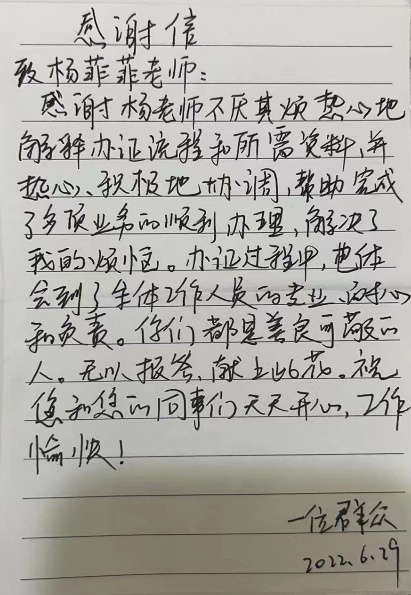 感谢信
致杨菲菲老师：
感谢杨老师不厌其烦热心地
解释办证流程和所需资料，并
热心、积极地协调，帮助完成
了多项业务的顺利办理，解决了
我的烦恼。办证过程中，也体
会到了全体工作人员的专业、耐心
和负责。你们都是善良可敬的
人。无以报答，献上此花。祝
您和您的同事们天天开心，工作
愉快！
一位群众
2022.6.29